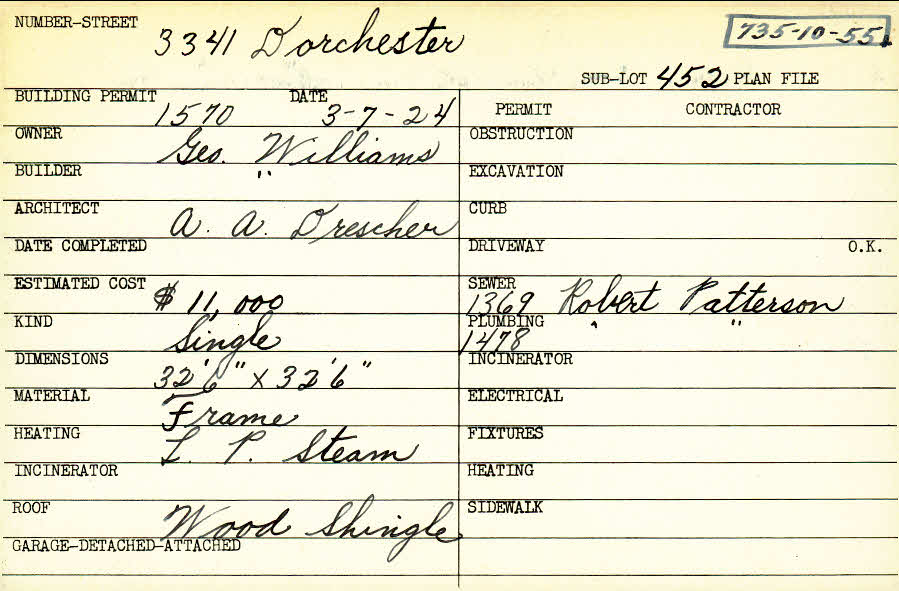 NUMBER-STREET 3341 Dorchester 735-10-55
SUB-LOT 452 PLAN FILE
BUILDING PERMIT 1570 DATE 3-7-24 PERMIT CONTRACTOR
OWNER Geo. Williams OBSTRUCTION
BUILDER " EXCAVATION
ARCHITECT A. A. Drescher CURB
DATE COMPLETED DRIVEWAY O.K.
ESTIMATED COST $ 11,000 SEWER 1369 Robert Patterson
KIND Single PLUMBING 1478 " "
DIMENSIONS 32'6" x 32'6" INCINERATOR
MATERIAL Frame ELECTRICAL
HEATING L. P. Steam FIXTURES
INCINERATOR HEATING
ROOF Wood Shingle SIDEWALK
GARAGE-DETACHED-ATTACHED